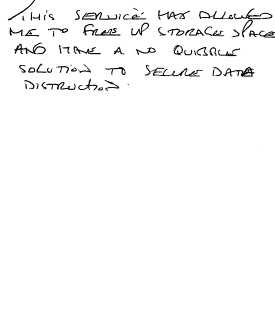 THIS SERVICE HAS ALLOWED
ME TO FREE UP STORAGE SPACE
AND HAVE A NO QUIBBLE
SOLUTION TO SECURE DATA
DISTRUCTION.